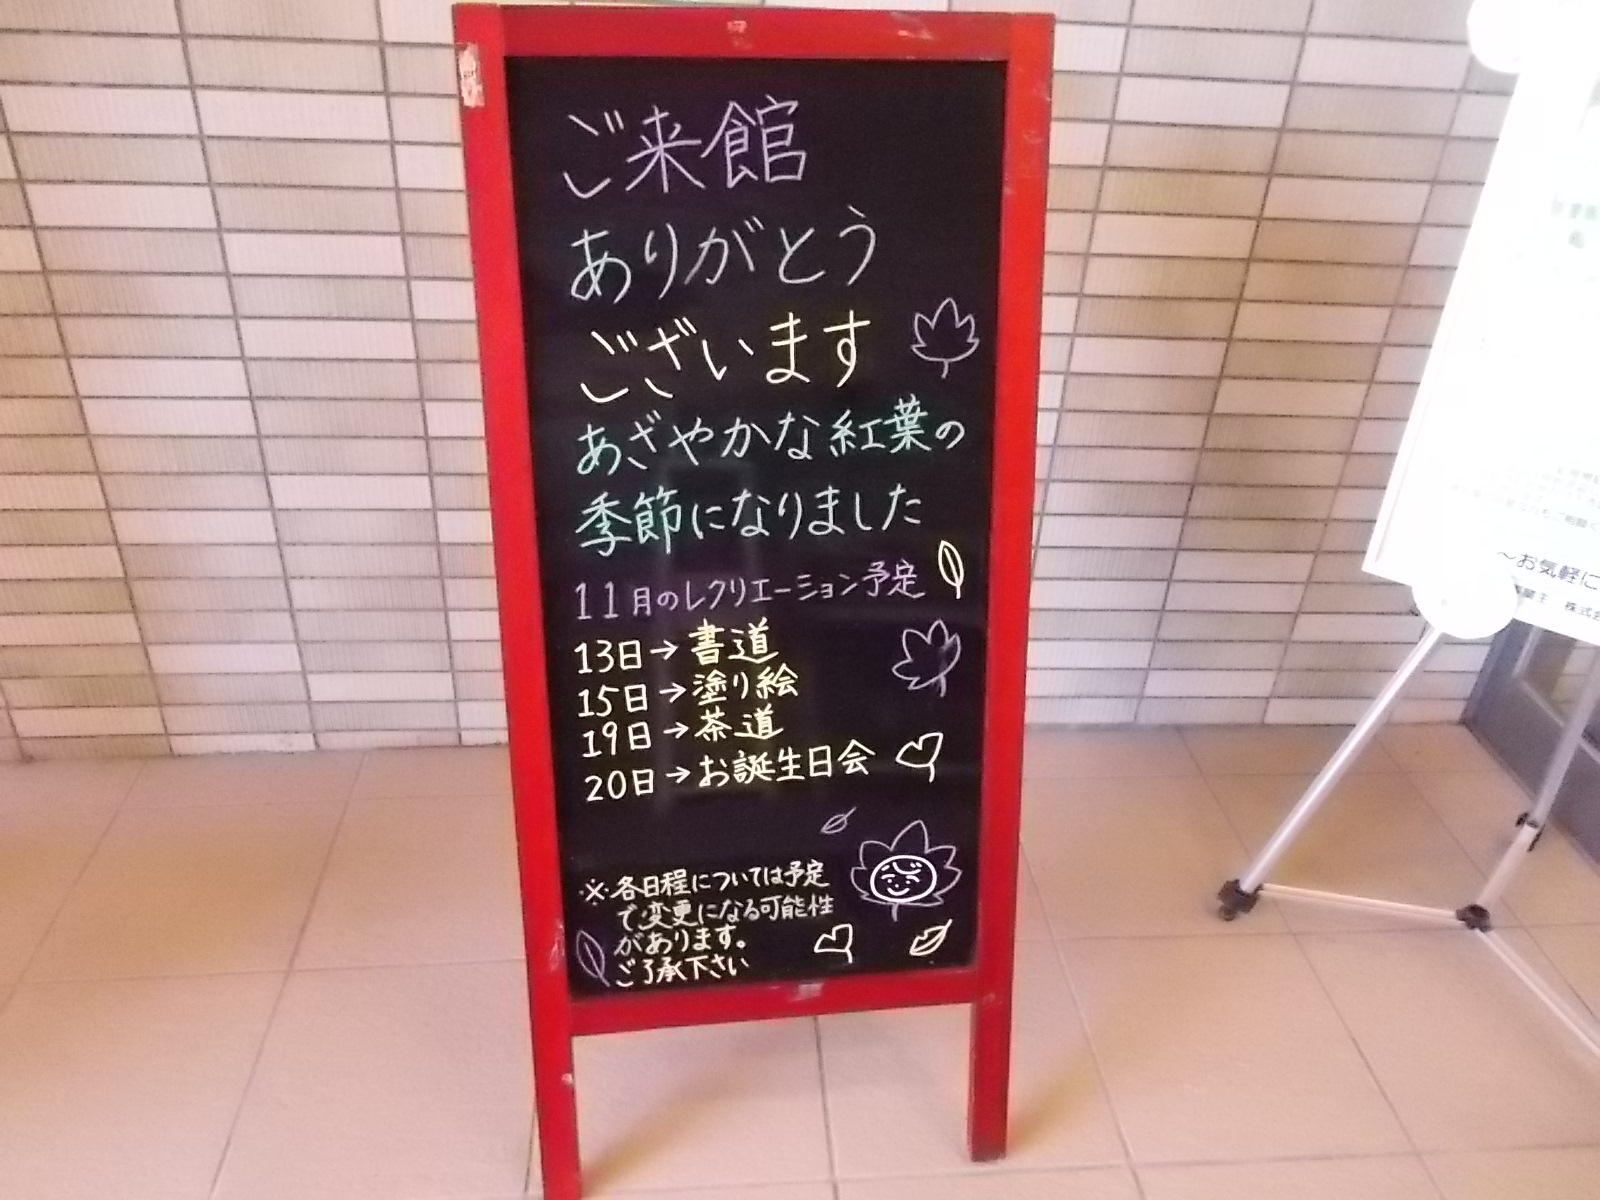 ご来館
ありがとう
ございます
あざやかな紅葉の
季節になりました
11月のレクリエーション予定
13日→書道
15日→塗り絵
19日→茶道
20日→お誕生日会
※各日程については予定
で変更になる可能性
があります。
ご了承下さい
～お気軽に
事業主 株式会